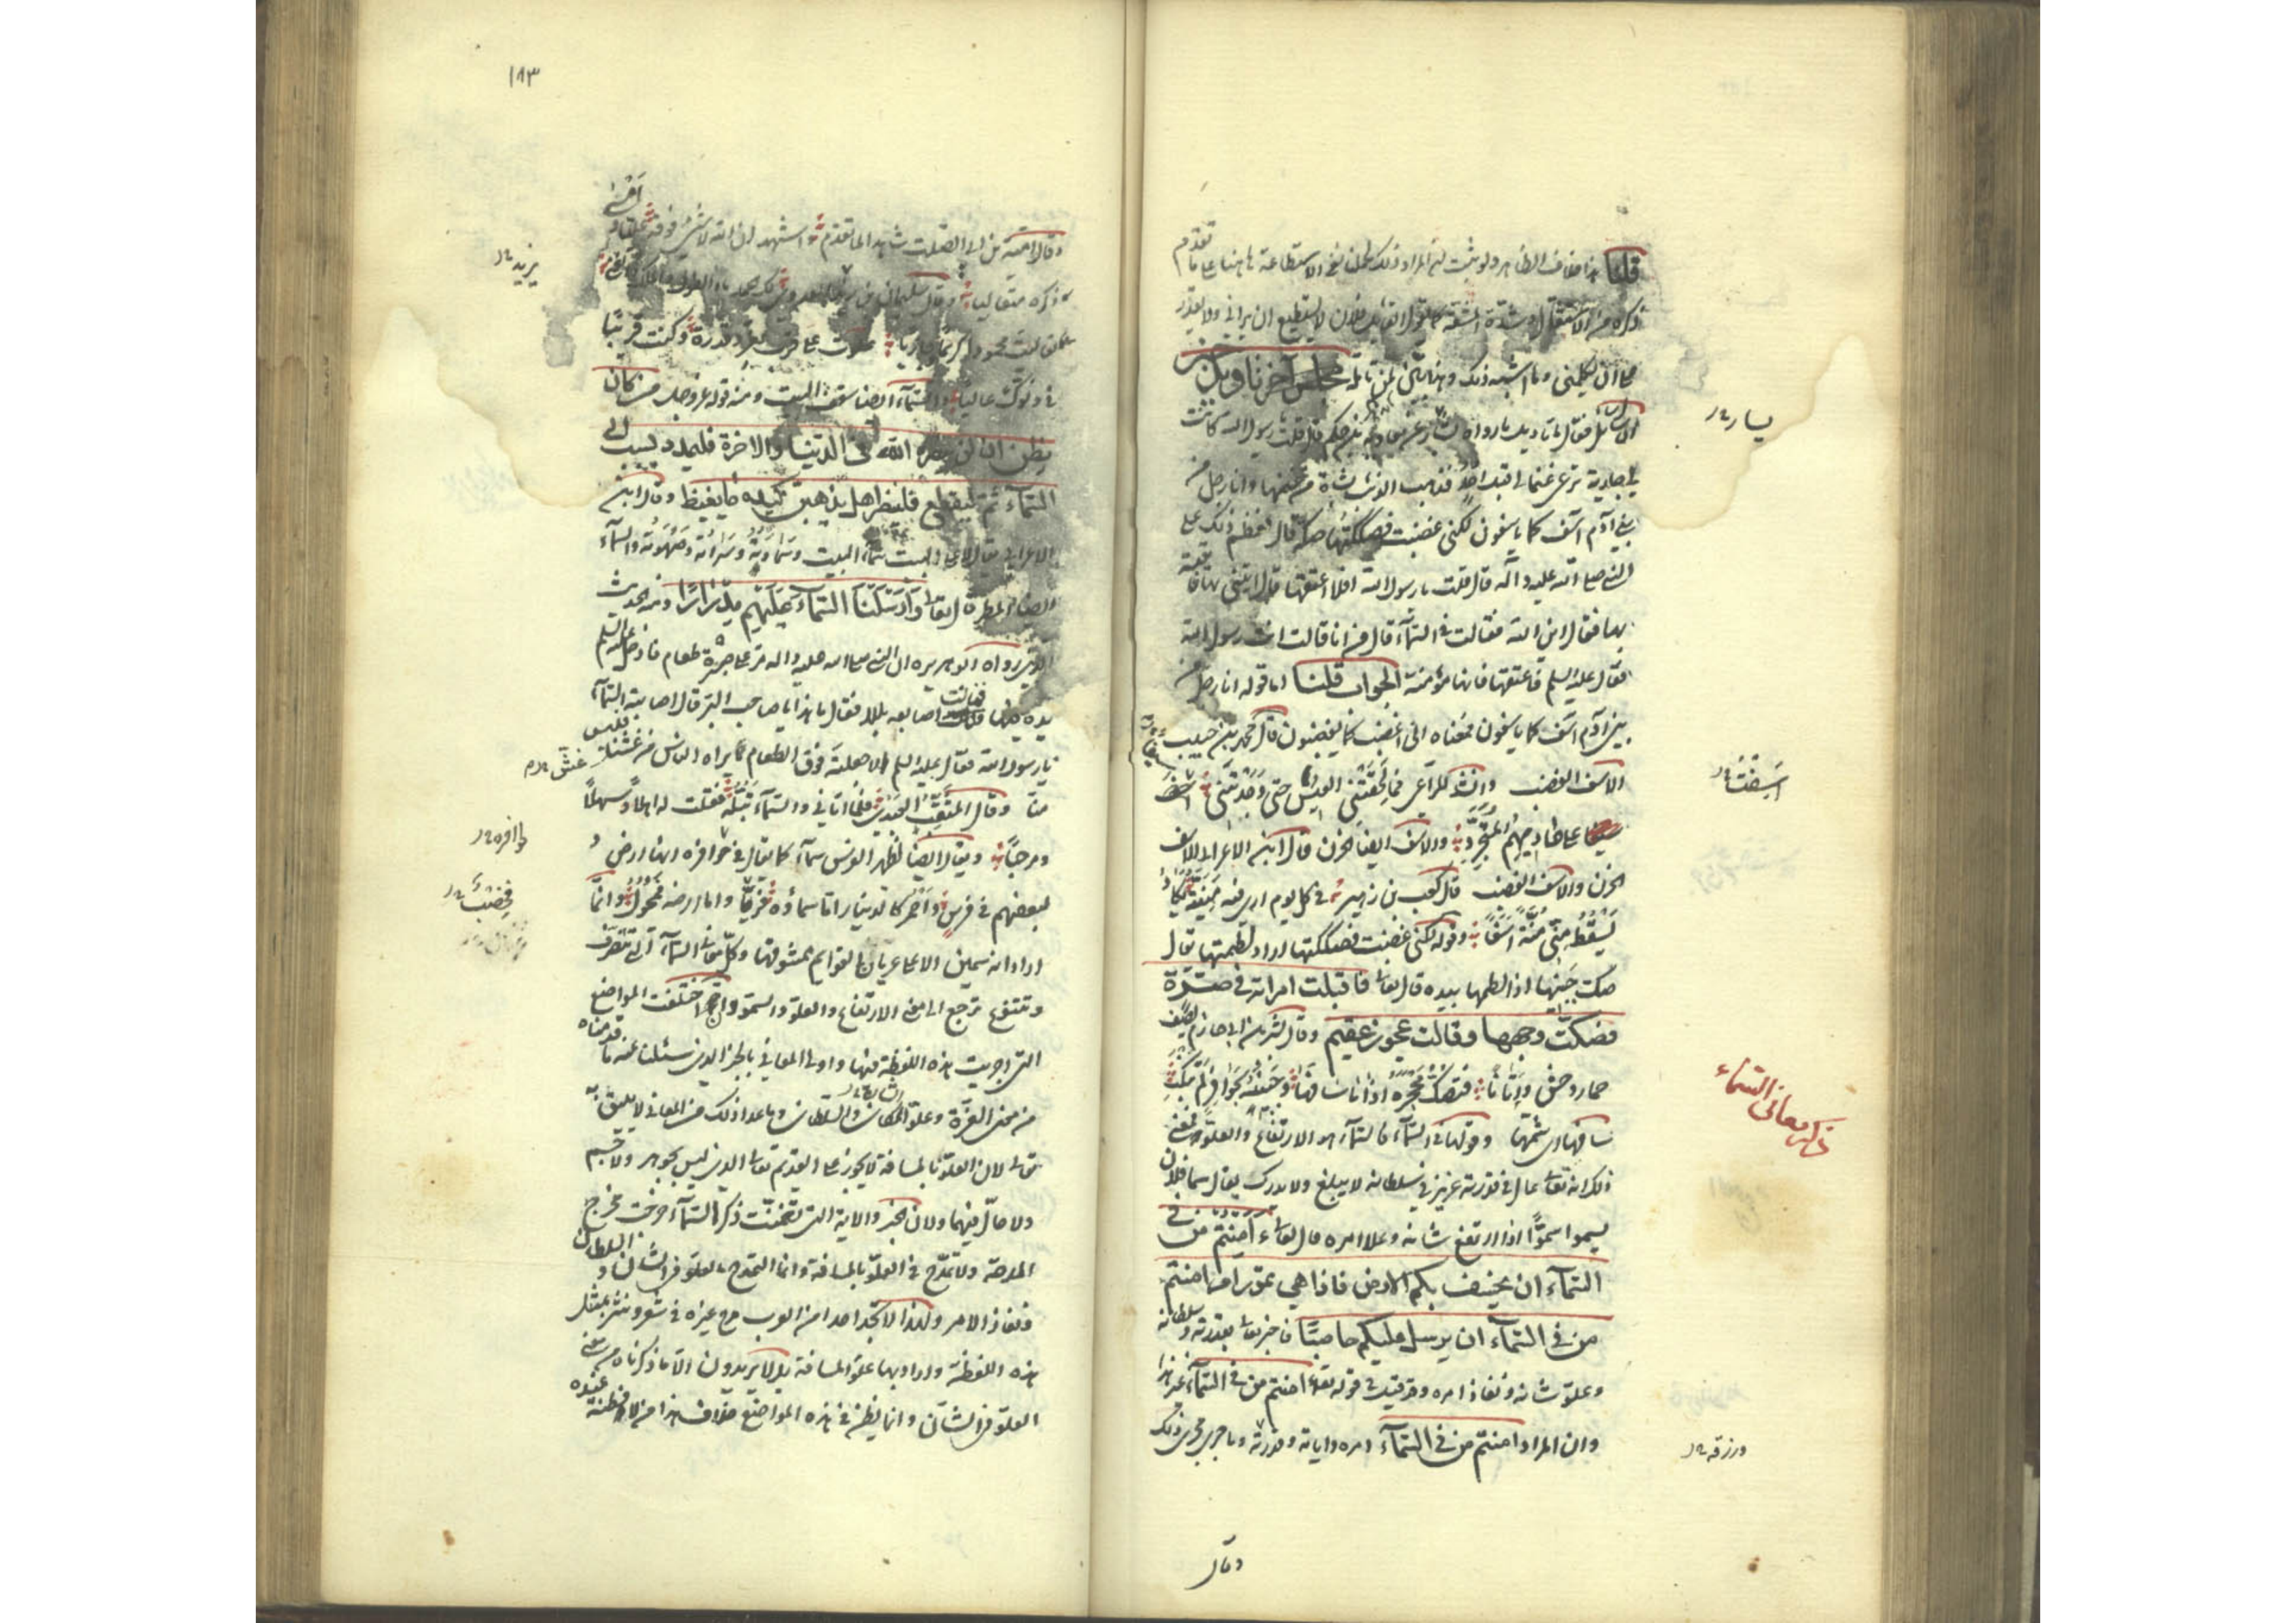 قلنا هذا خلاف الظاهر ولو ثبت انه المراد ذلك لحملنا نفي الاستطاعة هاهنا على ما تقدم
ذكره من الاستثقال وشدة المشقة كما يقول القائل فلان لا يستطيع ان يراني ولا يقدر
على ان يكلمني وما اشبه ذلك وهذا بيّن لمن تأمله مجلس آخر تأويل خبر
ان سائل فقال ما تأويل ما رواه بشار عن معاوية بن حكم قال قلت يا رسول الله كانت
لي جارية ترعى غنما لي قبل احد فذهب الذئب بشاة من غنمها وانا رجل من
بني آدم آسف كما يأسفون لكني غضبت فصككتها صكة قال فعظم ذلك على
النبي صلى الله عليه وآله قال قلت يا رسول الله افلا اعتقها قال ائتني بها فاتيته
بها فقال اين الله فقالت في السمآء قال من انا قالت انت رسول الله
فقال عليه السلم فاعتقها فانها مؤمنة الجواب قلنا اما قوله انا رجل من
بني آدم آسف كما يأسفون فمعناه اني اغضب كما يغضبون قال محمد بن حبيب
الاسف الغضب وانشد للراعي فما لحقتني العيس حتى وجدتني
على حاديهم المتجرد والاسف ايضا الحزن قال ابن الاعرابي الاسف
الحزن والاسف الغضب قال كعب بن زهير في كل يوم ارى فيه منية تكاد
تسقط مني منة اسفا وقوله لكني غضبت فصككتها اراد لطمتها يقال
صك جبهتها اذا لطمها بيده قال تعالى فاقبلت امراته في صرة
فصكت وجهها وقالت عجوز عقيم وقال بشر بن ابي حازم يصف
حمار وحش واتانا فتصك محجره اذا ما سافها وجبينه بحوافر لم تنكب
سافها اي شمها وقولها في السمآء فالسمآء هو الارتفاع والعلو فمعنى
ذلك انه تعالى عال في قدرته عزيز في سلطانه لا يبلغ ولا يدرك يقال سما فلان
يسموا سموا اذا ارتفع شانه وعلا امره قال تعالى ءامنتم من في
السمآء ان يخسف بكم الارض فاذا هي تمور ام امنتم
من في السمآء ان يرسل عليكم حاصبا فاخبر تعالى بقدرته وسلطانه
وعلو شانه ونفاذ امره وقد قيل في قوله تعالى ءامنتم من في السمآء غير هذا
وان المراد امنتم من في السمآء امره واياته وقدرته وما جرى مجرى ذلك
يسار
اسفت
ذكر معاني السماء
ورزقه
وقال
١٨٣
وقال امية بن ابي الصلت شاهدا لما تقدم واشهد ان الله لا شيء فوقه
ذكره متعاليا وقال سليمان بن يزيد العدوي لك الحمد يا ذا الطول والملك والغنى
تعاليت محمودا كريما وجازيا علوت على قرب بعز وقدرة وكنت قريبا
في دنوك عاليا والسمآء ايضا سقف البيت ومنه قوله عز وجل من كان
يظن ان لن ينصره الله في الدنيا والاخرة فليمدد بسبب الى
السمآء ثم ليقطع فلينظر هل يذهبن كيده ما يغيظ وقال ابن
الاعرابي يقال لاعلى البيت سمآء البيت وسماوته وسراته وصهوته والسمآء
ايضا المطر قال تعالى وارسلنا السمآء عليهم مدرارا ومنه الحديث
الذي رواه ابو هريرة ان النبي صلى الله عليه واله مر على صبرة طعام فادخل عليه السلم
يده فيها فنالت اصابعه بللا فقال ما هذا يا صاحب البر قال اصابته السمآء
يا رسول الله فقال عليه السلم الا جعلته فوق الطعام كما يراه الناس من غشنا فليس
منا وقال المثقب العبدي فلما اتاني والسمآء تبله فقلت له اهلا وسهلا
ومرحبا ويقال ايضا لظهر الفرس سمآء كما يقال في حوافره ارض و
لبعضهم في فرس واحمر كالدينار اما سماؤه فريا واما ارضه فمحول وانما
اراد انه سمين الاعلى عريان القوائم ممشوقها وكل معاني السمآء التي تتصرف
وتتنوع ترجع الى معنى الارتفاع والعلو والسمو وان اختلفت المواضع
التي اجريت هذه اللفظة فيها واولى المعاني بالخبر الذي سئلنا عنه ما قدمناه
من معنى العزة وعلو الشان والسلطان وما عدا ذلك من المعاني لا يليق به
تعالى لان العلو بالمسافة لا يجوز على القديم تعالى الذي ليس بجوهر ولا جسم
ولا حال فيهما ولان الخبر والاية التي تضمنت ذكر السمآء خرجت مخرج
المدحة ولا تمدح في العلو بالمسافة وانما التمدح بالعلو في الشان والسلطان
ونفاذ الامر ولهذا لا تجد احدا من العرب مدح غيره في شعر ونثر بمثل
هذه اللفظة واراد بها علو المسافة بل لا يريدون الا ما ذكرناه من معنى
العلو في الشان وانما يظن في هذه المواضع خلاف هذا من لا فطنة عنده
يزيد
غش
حوافره